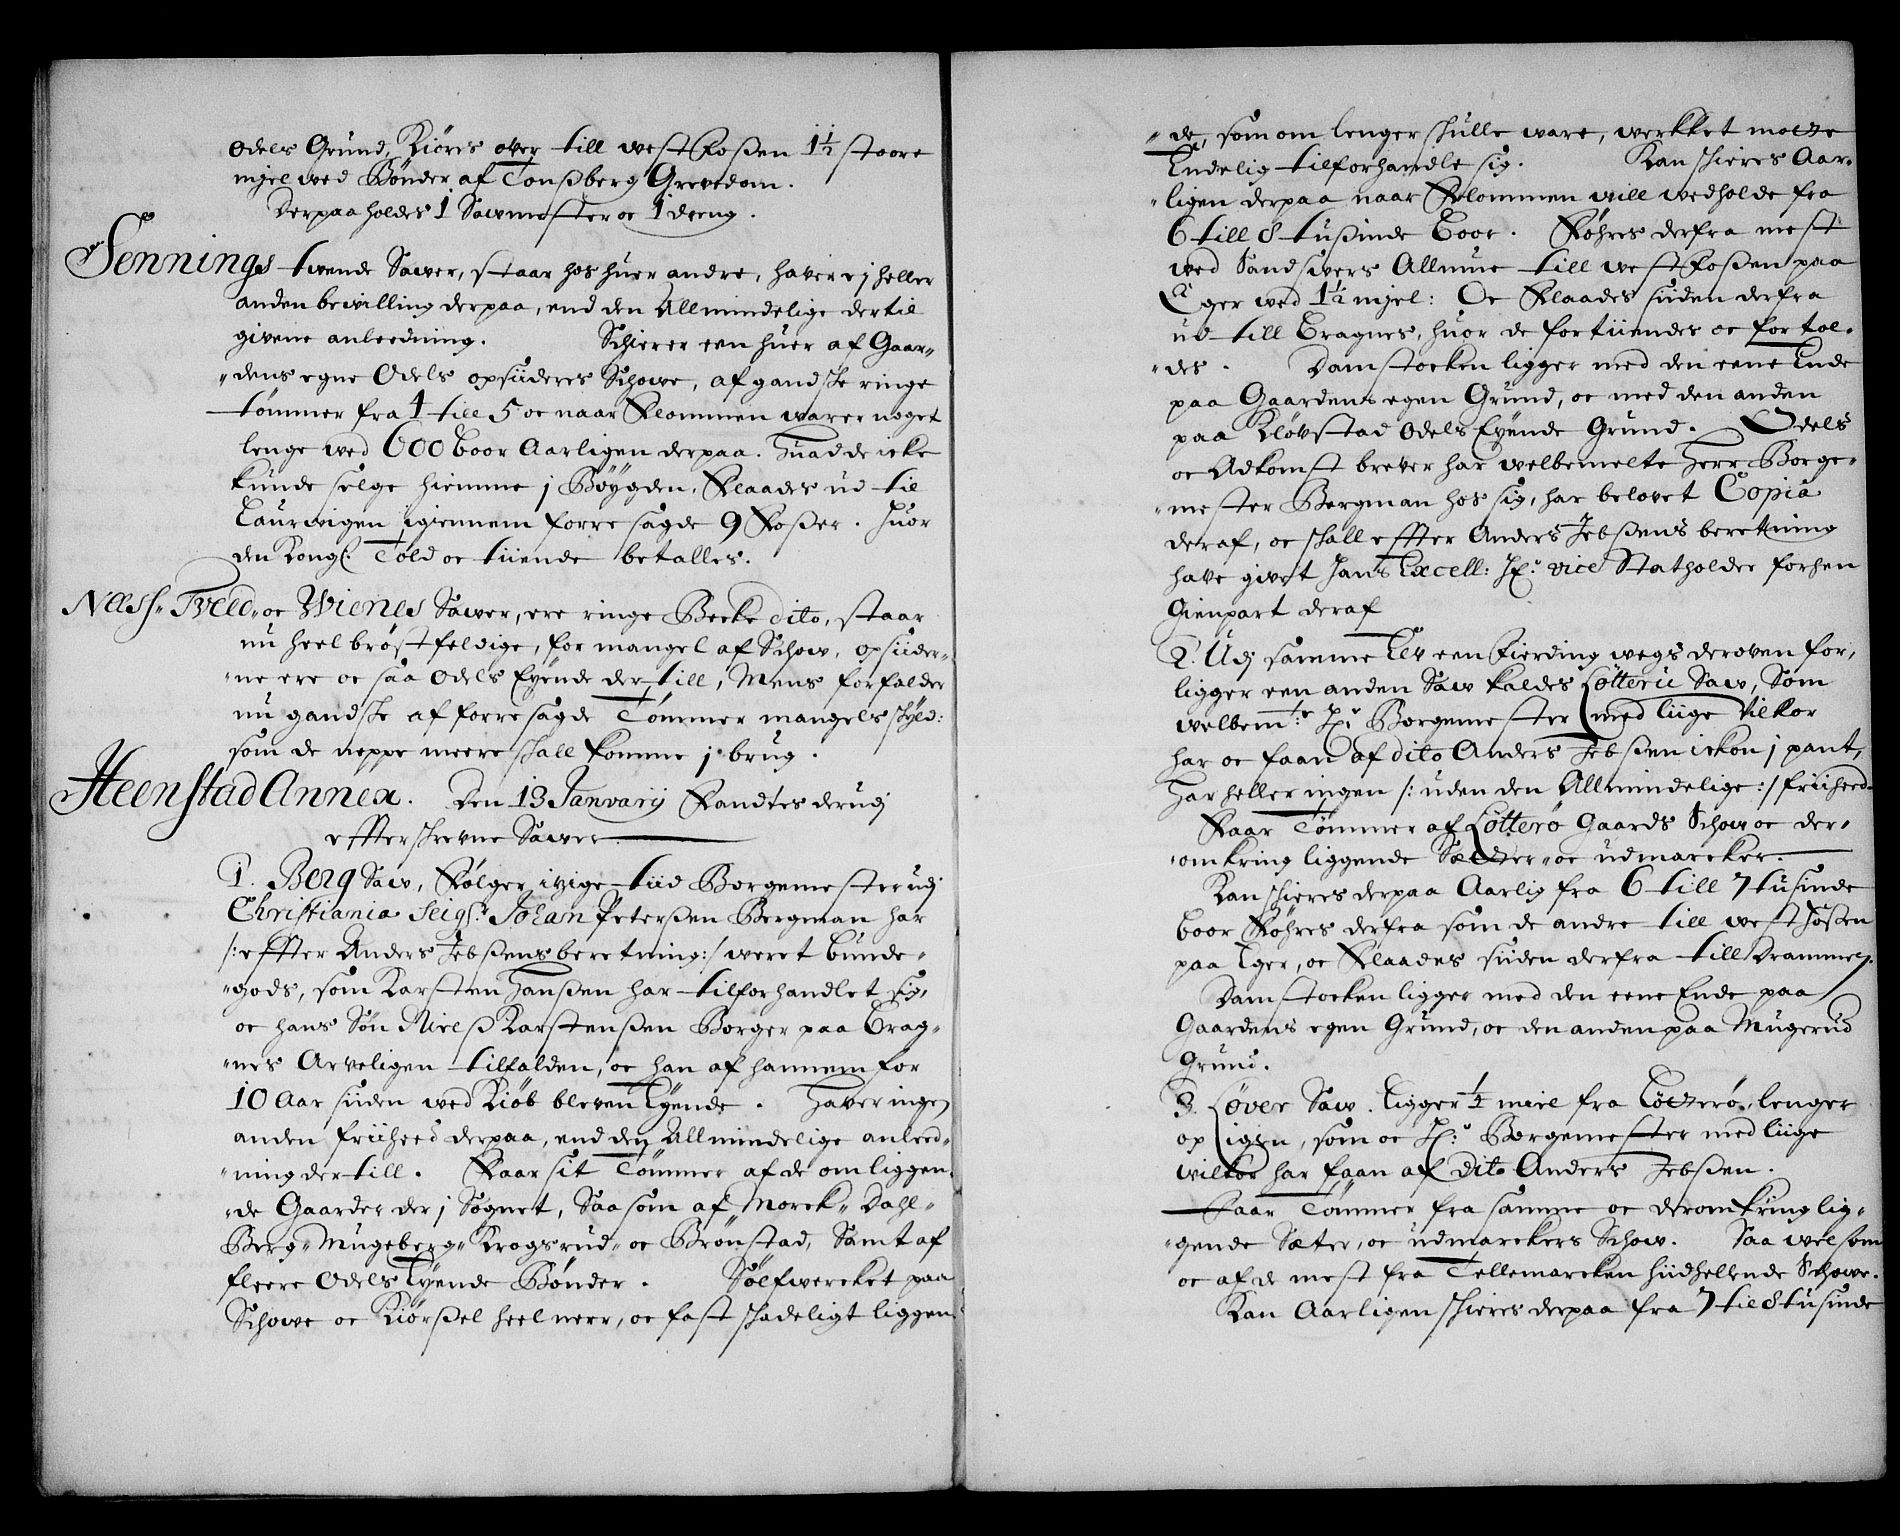 Odels Grund, Kiöres over till westFoßen 1½ stoore
mjel wed Bönder af Tonßberg Grevedom.
Derpaa holdes 1 Sawmester oc 1 dreng.
Sennings twende Sawer, staar hos huer andre, haver ej heller
anden bewilling derpaa, end den Allmindelige dertil
givene anleedning. Schierer een huer af Gaar„
„dens egne Odels opsiideres Schowe, af gandske ringe
tømmer fra 4 till 5 oc naar Flommen warer noget
lenge wed 600 boor Aarligen derpaa. Huad de icke
kunde selge hiemme j Böygden, Flaades ud til
Laurwigen igiennem forresagde 9 Foßer. Huor
den Kongl. Told oc tiiende betalles.
Næss„ Tveed„ oc Wienes Sawer, ere ringe Becke dito, staar
nu heel bröstfeldige, for mangel af Schow, opsiider„
„ne ere oc saa Odels Eyende der till, Mens forfalder
nu gandske af forresagde Tømmer mangels skyld:
som de neppe meere skall komme j brug.
Heenstad Annex. Den 13 Janvarij Fandtes derudj
effterskrevne Sawer
1. Berg Saw, Følger itzige tiid Borgemester udj
Christiania Seigr. Johan Peterßen Bergman har
/: effter Anders Jebßens beretning:/ weret bunde„
„gods, som Karsten Hanßen har tilforhandlet sig,
oc hans Søn Nielß Karstenßen Borger paa Brag„
„nes Arveligen tilfalden, oc han af hannem for
10 Aar siiden wed Kiöb bleven Eyende. Haver ingen
anden friiheed derpaa, end den Allmindelige anleed„
„ning der till. Faar sit Tømmer af de omliggen„
„de Gaarder der j Sognet, Saasom af Morck„ Dahl„
Berg„ Mugeberg„ Krogsrud„ oc Brønstad, Samt af
fleere Odels Eyende Bönder. Sölfwercket paa
Schowe oc Kiörßel heel nerr, oc fast skadeligt liggen„
„de, som om lenger skulle ware, werkket motte
Endelig tilforhandle sig. Kan skieres Aar„
„ligen derpaa naar Flommen will wedholde fra
6 till 8 tußinde Boor. Føhres derfra mest
wed Sandswers Allmue till westFoßen paa
Eger wed 1½ mjel: Oc Flaades siiden derfra
ud till Bragnes, huor de fortiiendes oc fortol„
„des. Damstocken ligger med den eene Ende
paa Gaardens egen Grund, oc med den anden
paa Kløvstad Odels Eyende Grund. Odels
oc Adkomst brever har welbemelte Herr Borge„
„mester Bergman hos sig, har belovet Copia
deraf, oc skall effter Anders Jebßens beretning
have givet Hans Excell: Hr. vice Statholder forhen
Gienpart deraf
2. Udj samme Elv een fierding wegs deroven for,
ligger een anden Saw kaldes Lötterü Saw, Som
welbemte: Hr. Borgemester med liige Vilkor
har oc faan af dito Anders Jebßen ickon j pant,
Har heller ingen /: uden den Allmindelige :/ friiheed.
Faar Tømmer af Lötterø Gaards Schow oc der„
„omkring liggende Sæter„ oc udmarcker.
Kan skieres derpaa Aarlig fra 6 till 7 tusinde
boor Føhres derfra som de andre till westFoßen
paa Eger, oc Flaades siiden derfra till Drammen.
Damstocken ligger med den eene Ende paa
Gaardens egen Grund, oc den anden paa Mugerud
Grund.
3. Löver Saw. Ligger ½ miel fra Lötterø, lenger
op igien, som oc Hr. Borgemester med liige
wilkor har faan af dito Anders Jebßen.
Faar Tømmer fra samme oc deromkring lig„
„gende Sæter, oc udmarckers Schow. Saa wel som
oc af de mest fra Tellemarcken hiidhellende Schowe.
Kan Aarligen skieres derpaa fra 7 til 8 tusinde